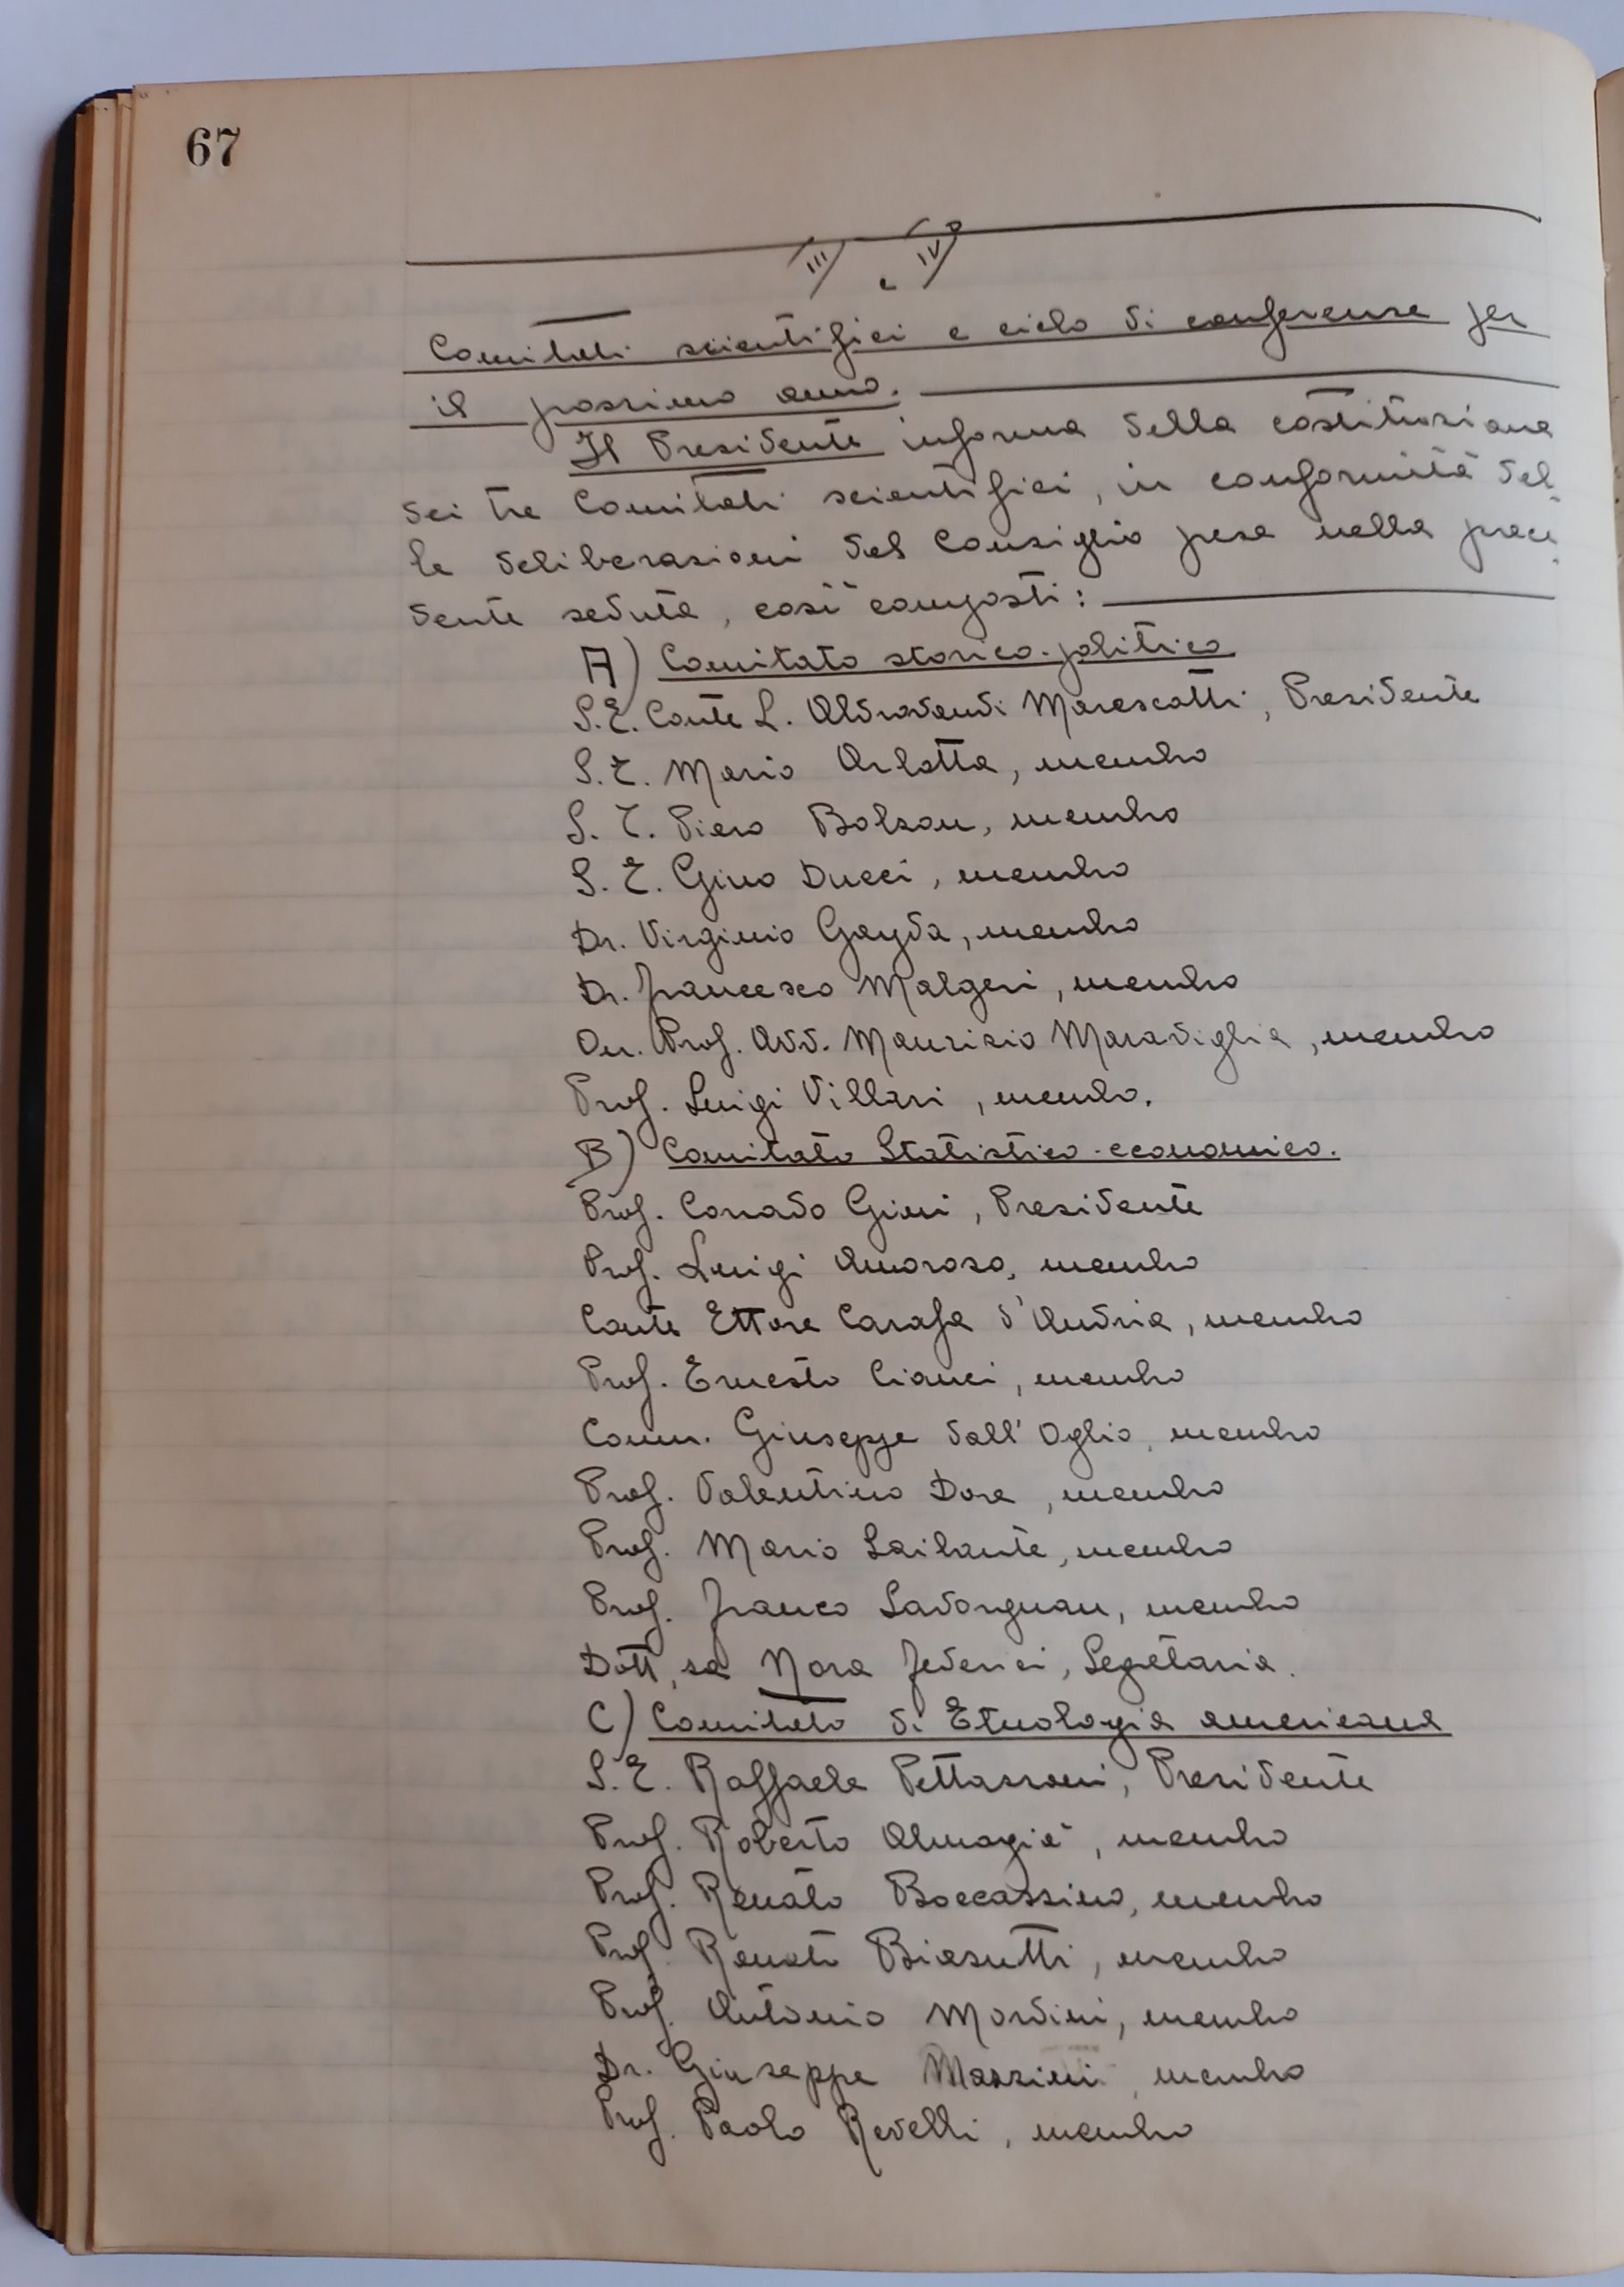 67
III) e IV)
Comitati scientifici e ciclo di conferenze per
il prossimo anno.
Il Presidente informa della costituzione
dei tre Comitati scientifici, in conformità del-
le deliberazioni del Consiglio prese nella prece-
dente seduta, così composti:
A) Comitato storico-politico
S.E. Conte L. Aldrovandi Marescotti, Presidente
S.E. Mario Arlotta, membro
S.E. Piero Bolzon, membro
S.E. Gino Ducci, membro
Dr. Virginio Gayda, membro
Dr. Francesco Malgeri, membro
On. Prof. Avv. Maurizio Maraviglia, membro
Prof. Luigi Villari, membro.
B) Comitato Statistico-economico.
Prof. Corrado Gini, Presidente
Prof. Luigi Amoroso, membro
Conte Ettore Carafa d'Andria, membro
Prof. Ernesto Cianci, membro
Comm. Giuseppe dall'Oglio, membro
Prof. Valentino Dore, membro
Prof. Mario Sailante, membro
Prof. Franco Savorgnan, membro
Dott.sa Nora Federici, Segretaria.
C) Comitato di Etnologia americana
S.E. Raffaele Pettazzoni, Presidente
Prof. Roberto Almagià, membro
Prof. Renato Boccassino, membro
Prof. Renato Biasutti, membro
Prof. Antonio Mordini, membro
Dr. Giuseppe Mazzini, membro
Prof. Paolo Revelli, membro